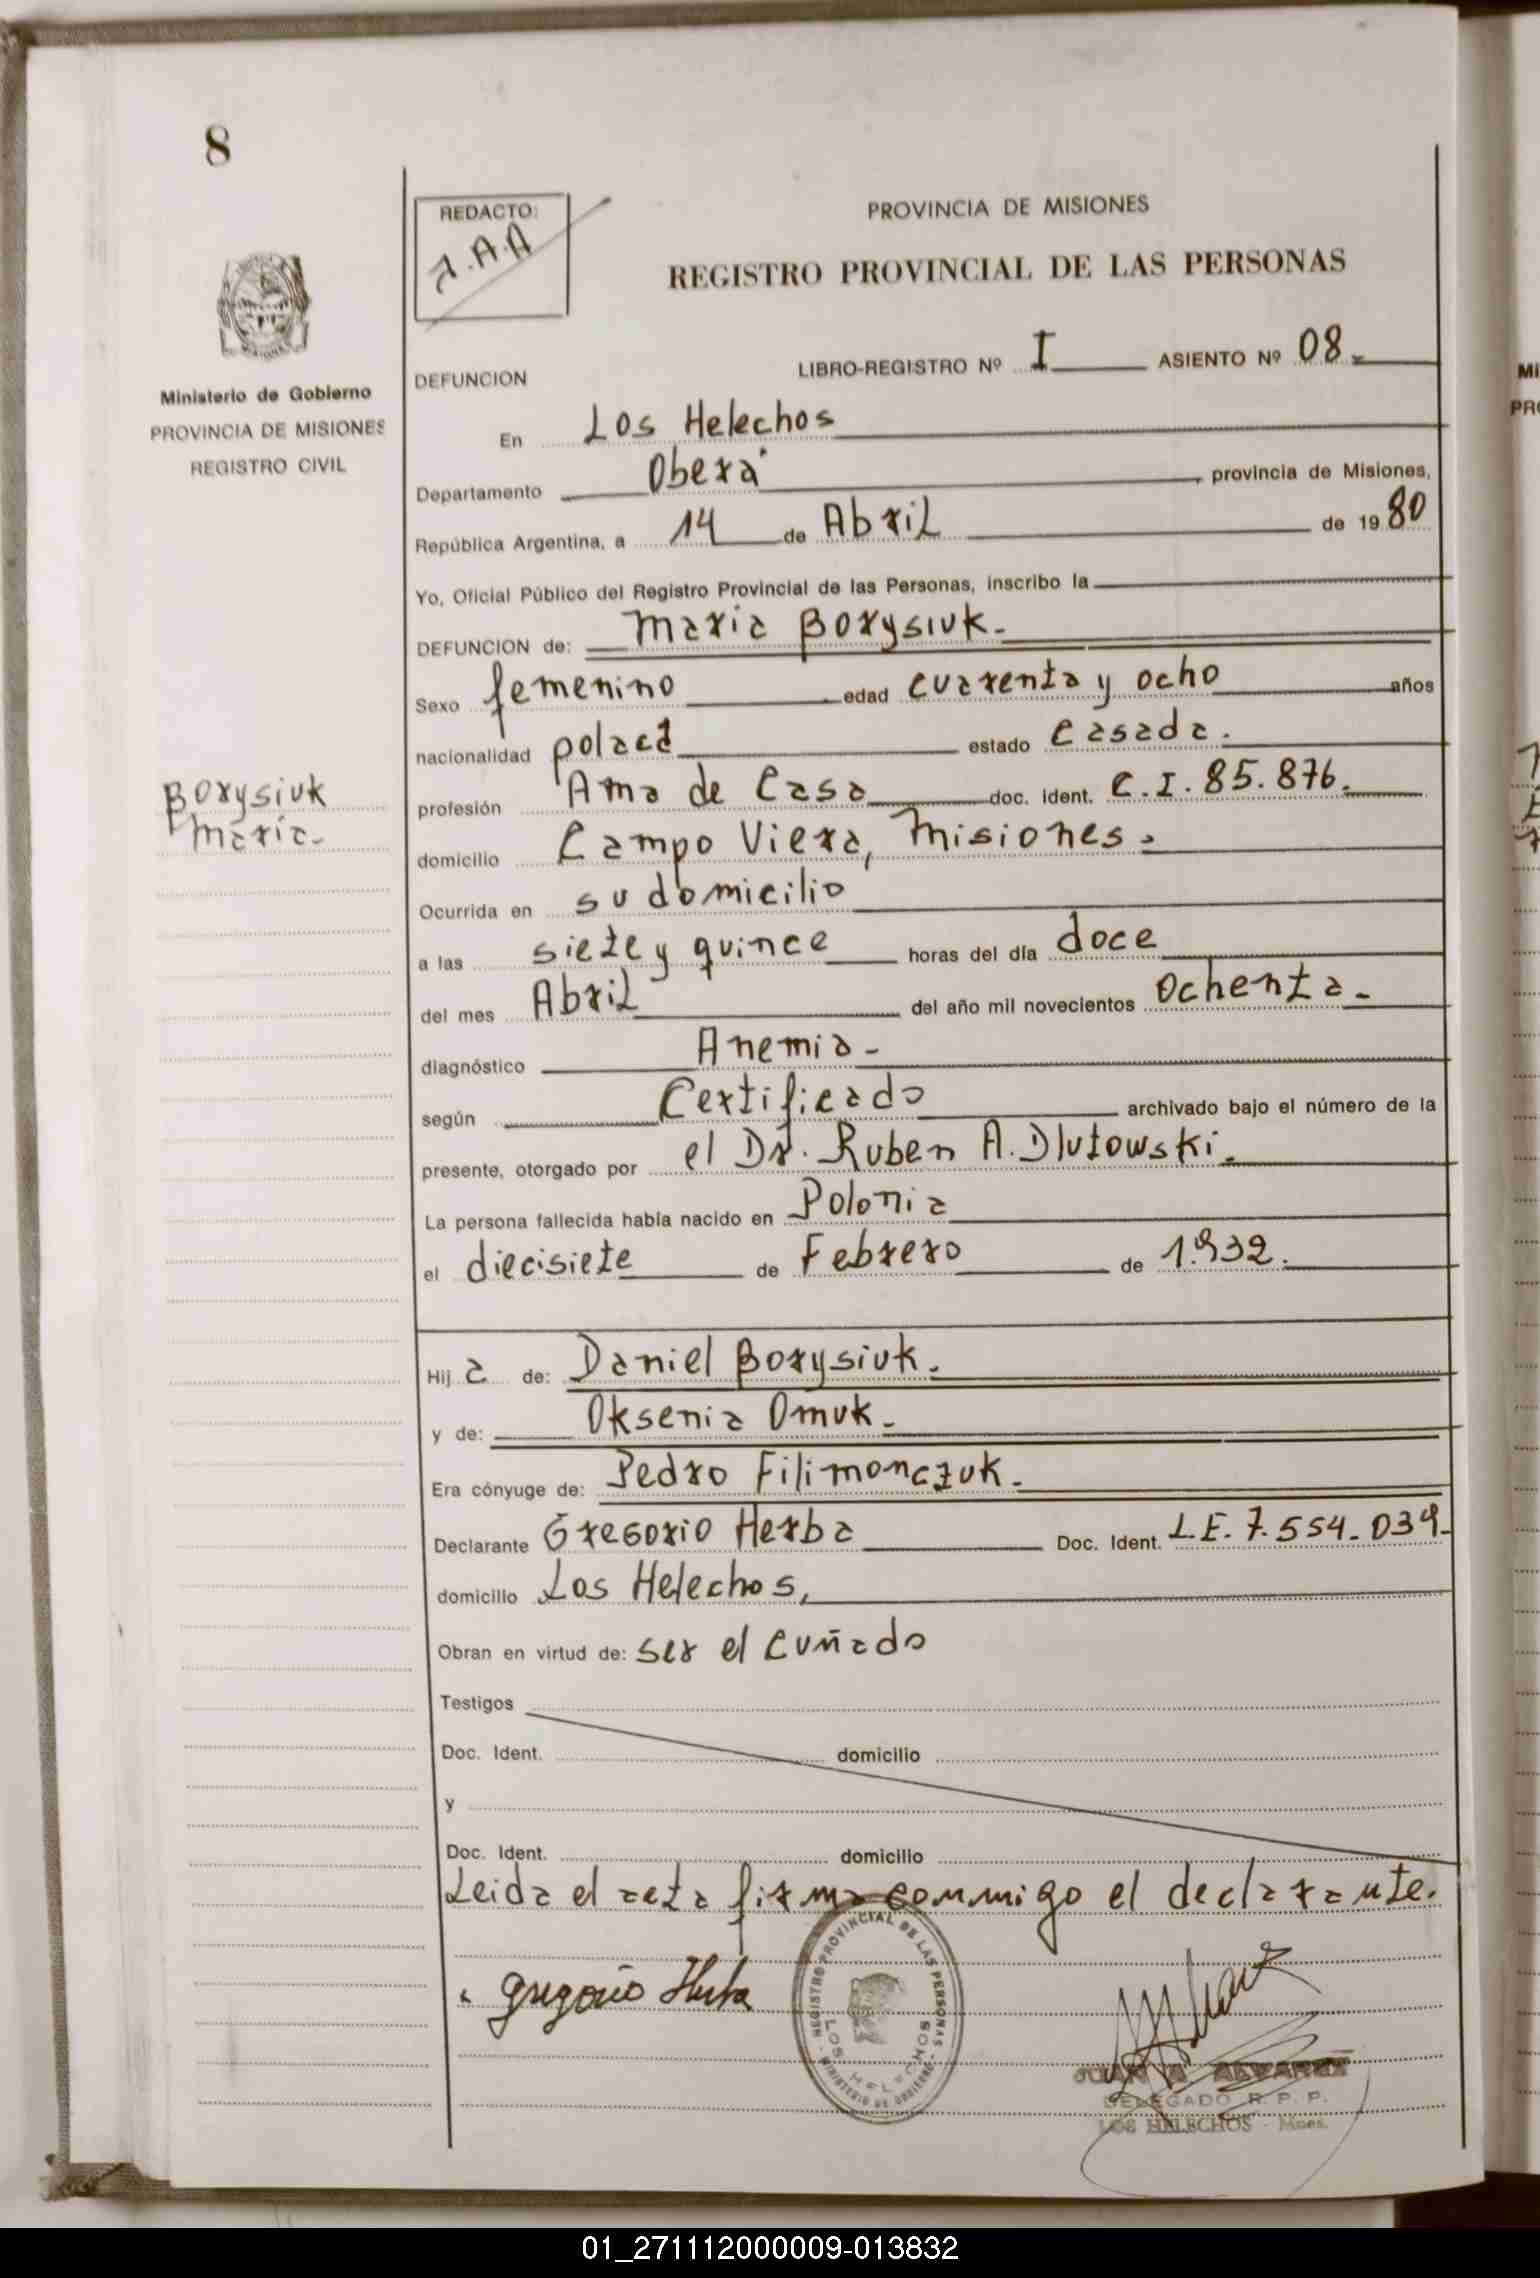 8
REDACTO:
J.A.A
PROVINCIA DE MISIONES
REGISTRO PROVINCIAL DE LAS PERSONAS
Ministerio de Gobierno
PROVINCIA DE MISIONES
REGISTRO CIVIL
DEFUNCION LIBRO-REGISTRO Nº I ASIENTO Nº 08.
En Los Helechos
Departamento Oberá provincia de Misiones,
República Argentina, a 14 de Abril de 1980
Yo, Oficial Público del Registro Provincial de las Personas, inscribo la
DEFUNCION de: Maria Borysiuk.
Sexo femenino edad cuarenta y ocho años
nacionalidad polaca estado Casada.
Borysiuk
Maria-
profesión Ama de Casa doc. ident. C.I. 85.876.
domicilio Campo Viera, Misiones.
Ocurrida en su domicilio
a las siete y quince horas del día doce
del mes Abril del año mil novecientos Ochenta-
diagnóstico Anemia-
según Certificado archivado bajo el número de la
presente, otorgado por el Dr. Ruben A. Dlutowski.
La persona fallecida había nacido en Polonia
el diecisiete de Febrero de 1.932.
Hij a de: Daniel Borysiuk.
y de: Oksenia Omuk-
Era cónyuge de: Pedro Filimonczuk-
Declarante Gregorio Herba Doc. Ident. L.E. 7.554.039-
domicilio Los Helechos,
Obran en virtud de: ser el cuñado
Testigos
Doc. Ident. domicilio
y
Doc. Ident. domicilio
Leida el acta firma commigo el declarante.
REGISTRO PROVINCIAL DE LAS PERSONAS
LOS HELECHOS
MINISTERIO DE GOBIERNO
JUAN A. ALVAREZ
DELEGADO R. P. P.
LOS HELECHOS - Mnes.
01_271112000009-013832